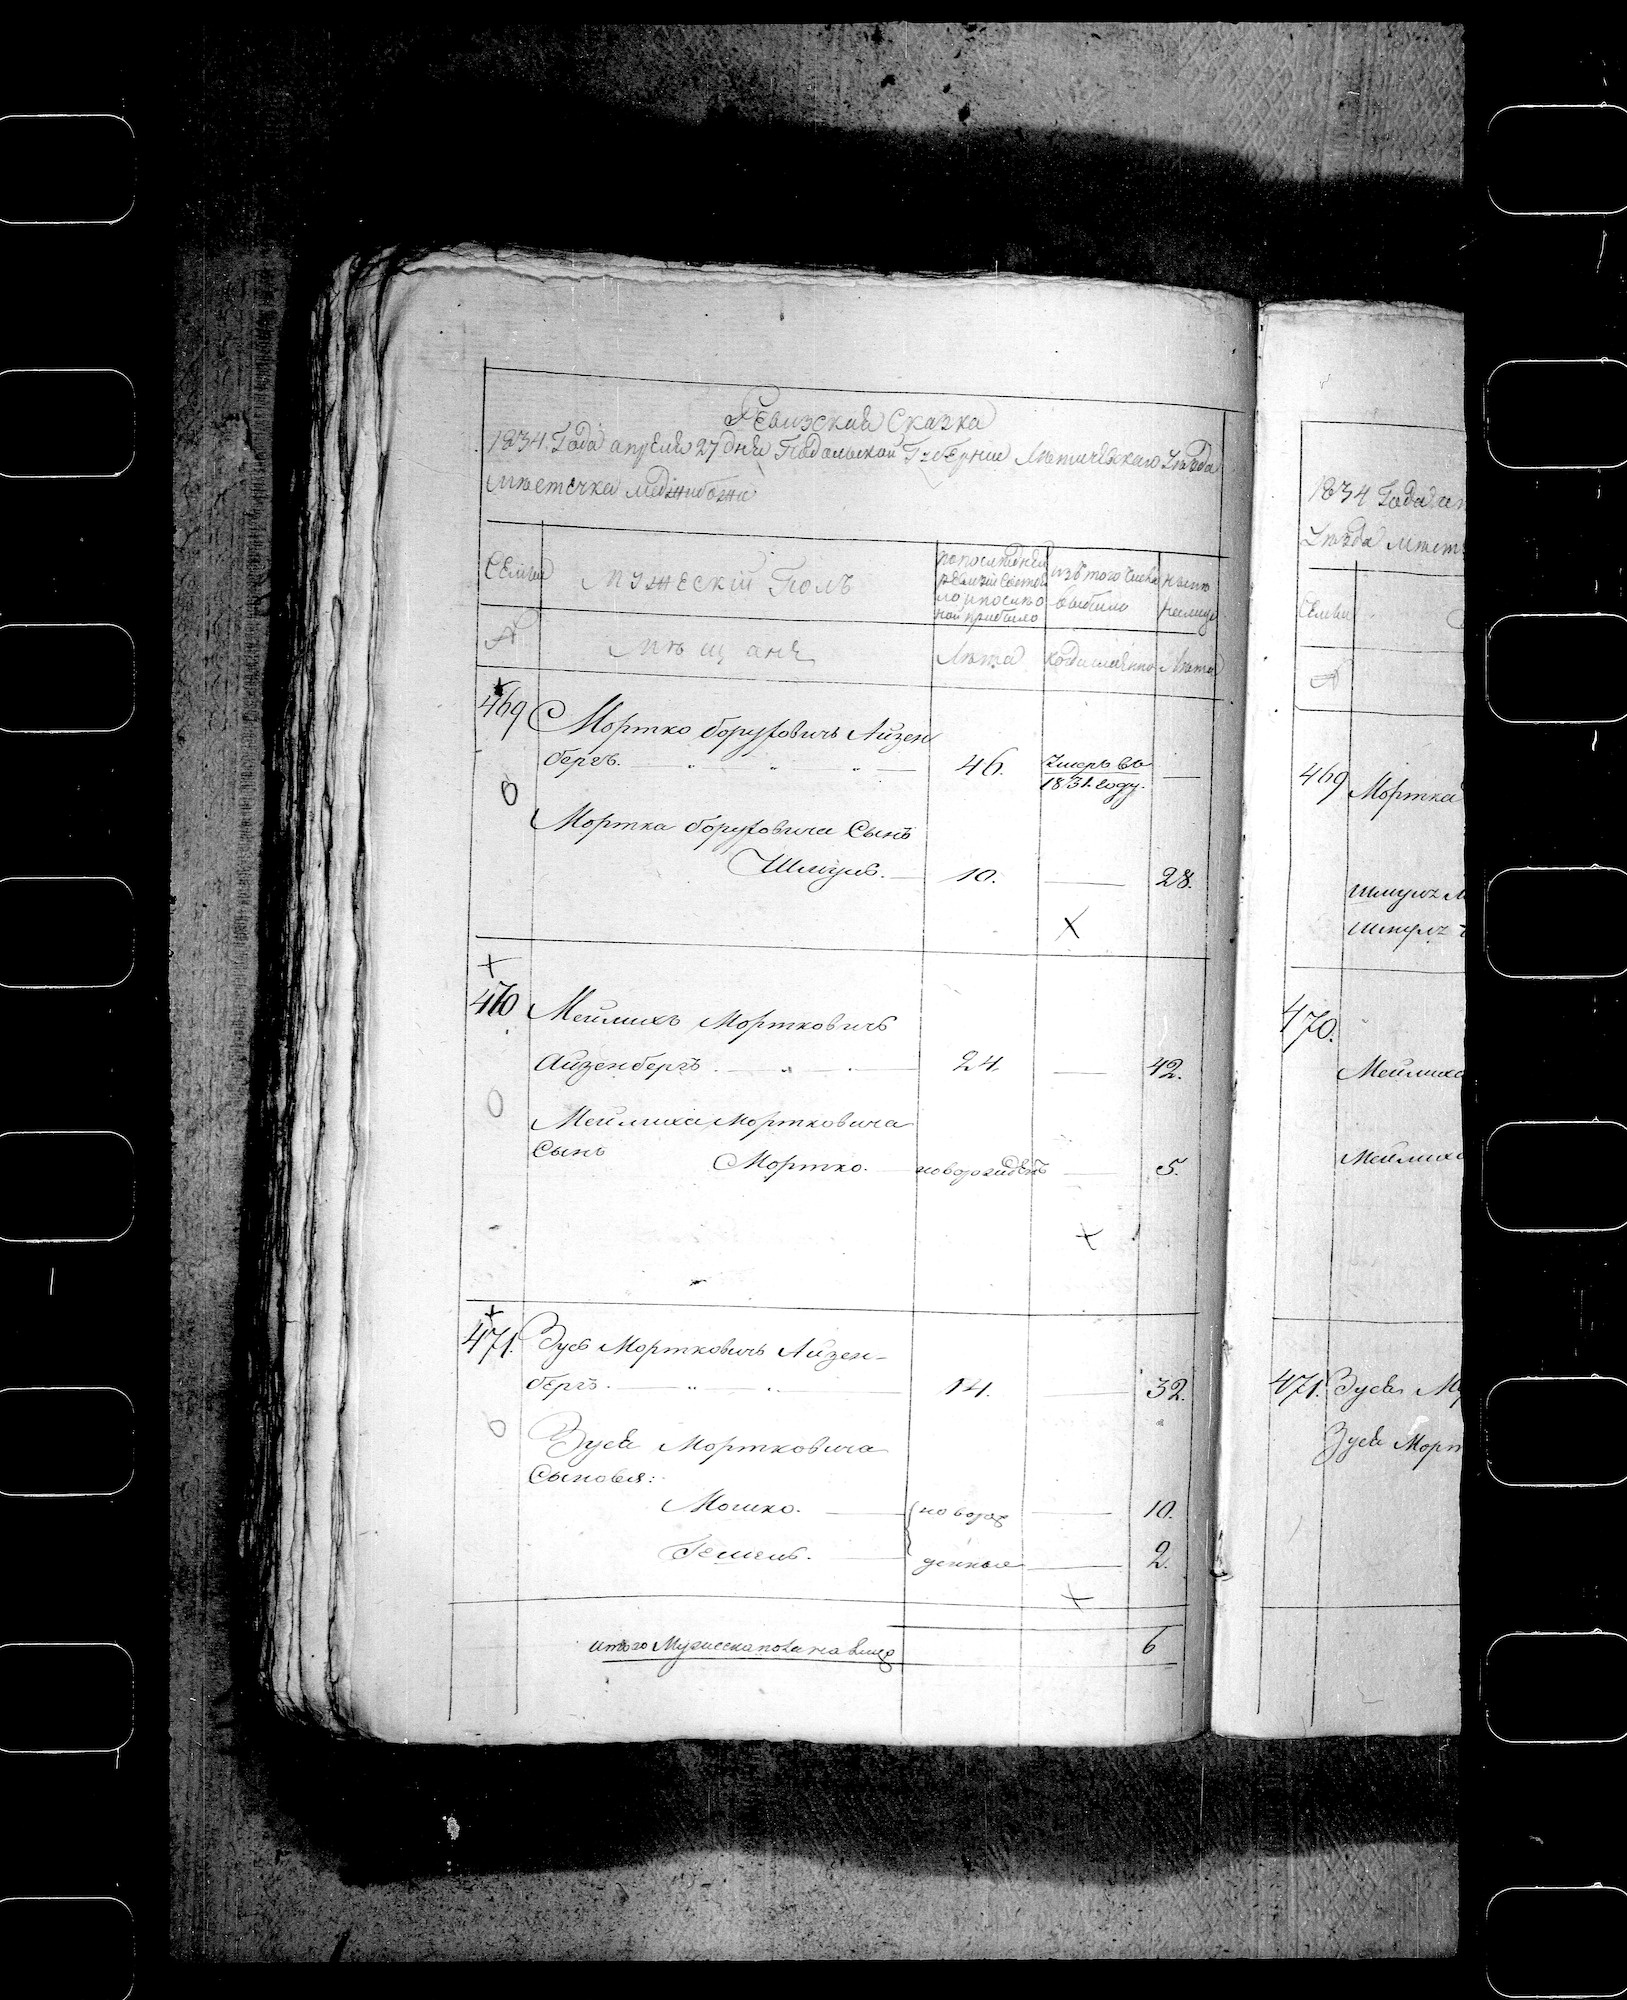 Ревизская Сказка
1834 Года апреля 27 дня Подольской Губернии Летичевскаго Уезда
местечка Меджибожа
Семьи
Мужеский Полъ
по последней
ревизии состоя
ло и после о
ной прибыло
изъ того числа
выбыло
ныне
налицо
№
Мещане
Лета
когда имянно
Лета
469
Мортко Борухович Айзен
бергъ.
46.
Умеръ въ
1831. году.
Мортка Боруховича Сынъ
Шмуль.
10.
28.
470
Мейлихъ Морткович
Айзенбергъ.
24.
42.
Мейлиха Мортковича
Сынъ
Мортко.
новорожденъ
5.
471.
Зусь Мортковичь Айзен-
бергъ.
14.
32.
Зуся Мортковича
Сыновья:
Мошко.
новорож
10.
денные
2.
итого Мужеска пола на лицо
6
1834 Года
Уезда мест
Семьи
№
469
Мортка
Шмуля М
Шмуля
470.
Мейлиха
Мейлиха
471.
Зуся М
Зуся Морт